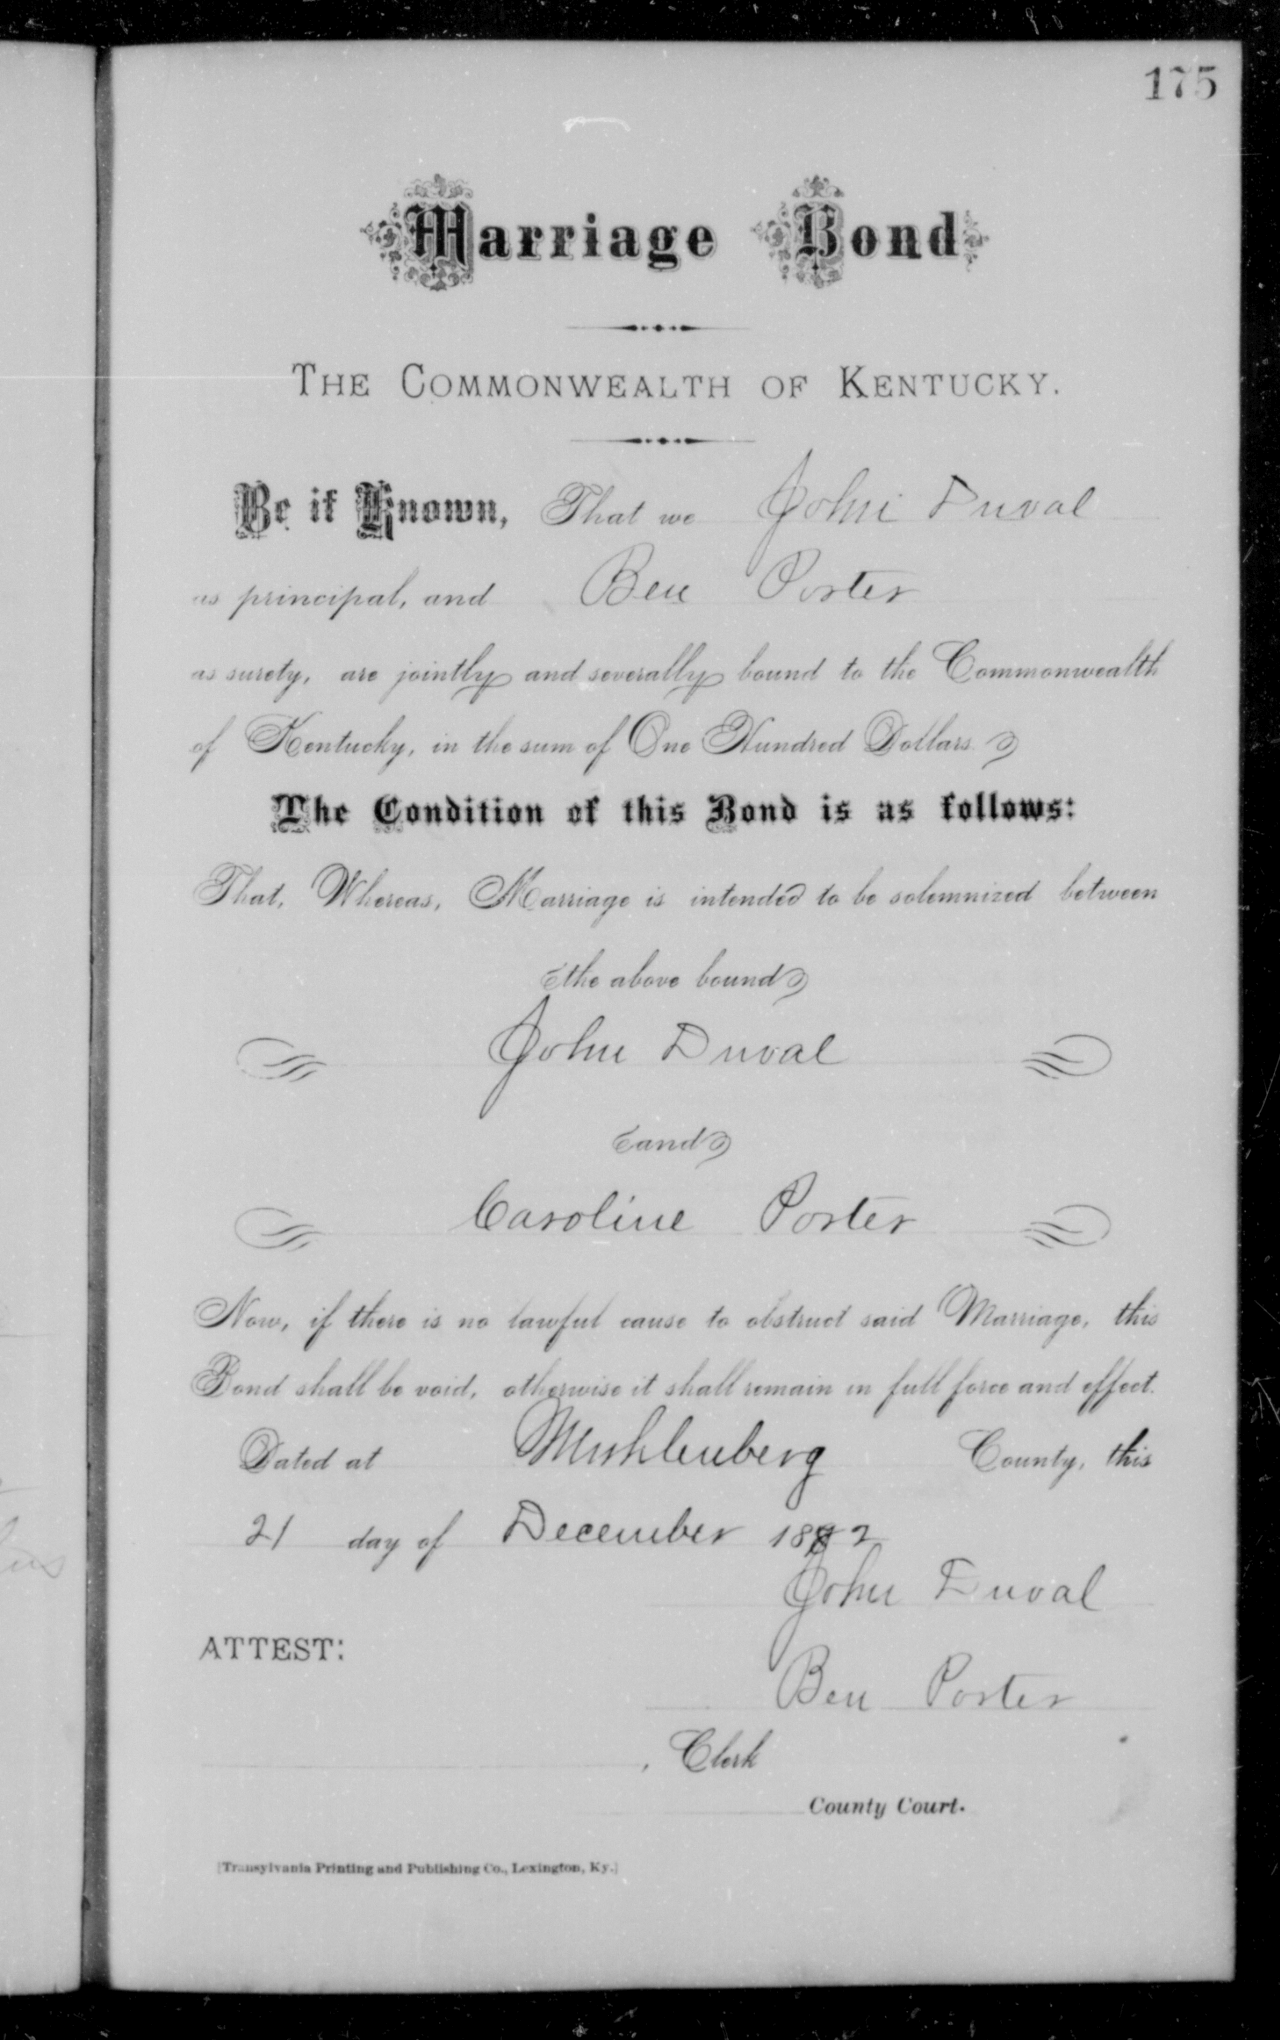 175
Marriage Bond
THE COMMONWEALTH OF KENTUCKY.
Be it Known, That we John Duval
as principal, and Ben Porter
as surety, are jointly and severally bound to the Commonwealth
of Kentucky, in the sum of One Hundred Dollars.
The Condition of this Bond is as follows:
That, Whereas, Marriage is intended to be solemnized between
the above bound
John Duval
and
Caroline Porter
Now, if there is no lawful cause to obstruct said Marriage, this
Bond shall be void, otherwise it shall remain in full force and effect.
Dated at Muhlenberg County, this
21 day of December 1882
John Duval
ATTEST:
Ben Porter
, Clerk
County Court.
[Transylvania Printing and Publishing Co., Lexington, Ky.]